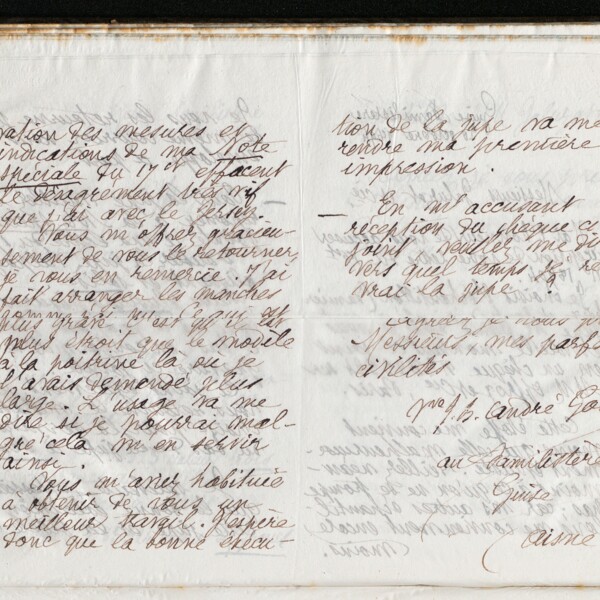 ration des mesures et
indications de ma Note
spéciale du 17 ct effacent
le désagrément très vif
que j'ai avec le Jersey.
Vous m'offrez gracieu-
sement de vous le retourner,
je vous en remercie. J'ai
fait arranger les manches
plus grave c'est qu'il est
plus étroit que le modèle
à la poitrine là où je
l'avais demandé plus
large. L'usage va me
dire si je pourrai mal-
gré cela m'en servir
ainsi.
Vous m'aviez habituée
à obtenir de vous un
meilleur travail. J'espère
donc que la bonne exécu-
tion de la jupe va me
rendre ma première
impression.
En m'accusant
réception du chèque ci
joint veuillez me di
vers quel temps je re
vrai la jupe
Messieurs mes parf
civilités
André Go
au Familistère
Guise
Aisne